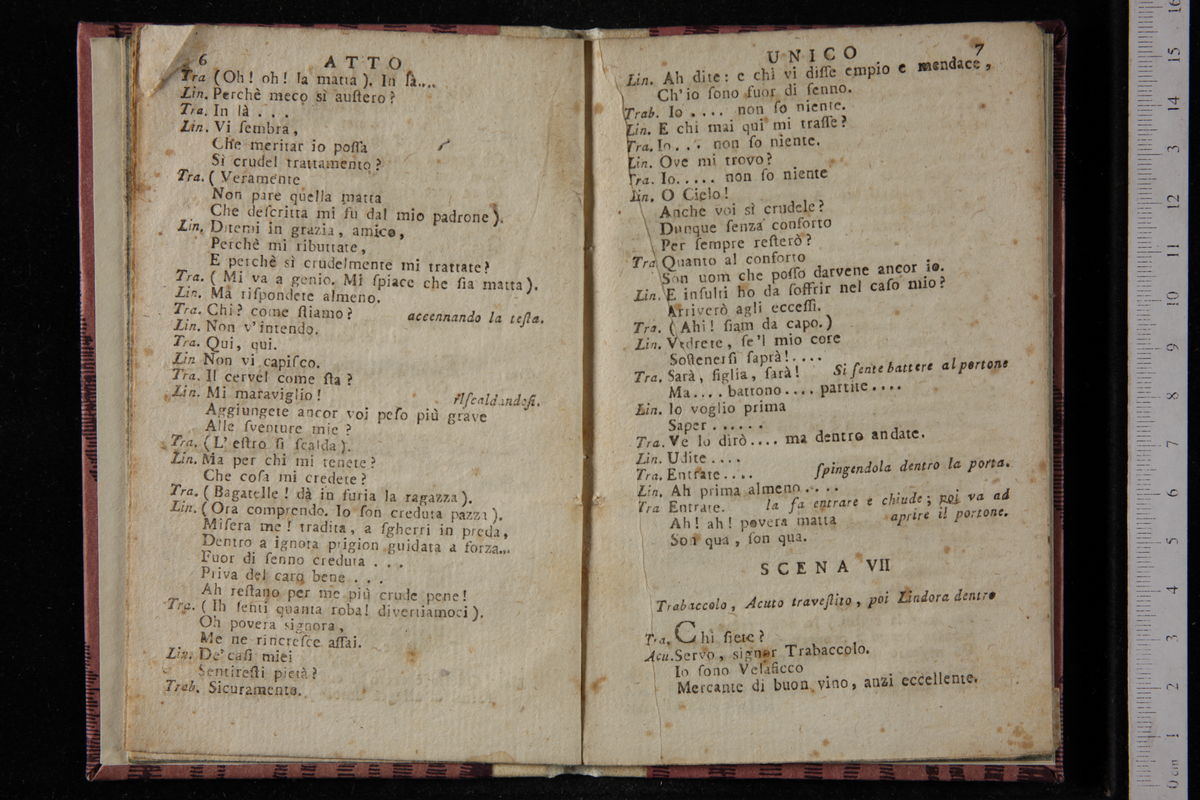 6 ATTO
Tra (Oh! oh! la matta). In là....
Lin. Perchè meco sì auſtero?
Tra. In là . . .
Lin. Vi ſembra,
Che meritar io poſſa
Sì crudel trattamento?
Tra. ( Veramente
Non pare quella matta
Che deſcritta mi fu dal mio padrone).
Lin. Ditemi in grazia, amico,
Perchè mi ributtate,
E perchè sì crudelmente mi trattate?
Tra. ( Mi va a genio. Mi ſpiace che ſia matta).
Lin. Ma riſpondete almeno.
Tra. Chi? come ſtiamo? accennando la teſta.
Lin. Non v'intendo.
Tra. Qui, qui.
Lin Non vi capiſco.
Tra. Il cervel come ſta?
Lin. Mi maraviglio! riſcaldandoſi.
Aggiungete ancor voi peſo più grave
Alle ſventure mie?
Tra. (L'eſtro ſi ſcalda).
Lin. Ma per chi mi tenete?
Che coſa mi credete?
Tra. ( Bagatelle! dà in furia la ragazza).
Lin. (Ora comprendo. Io ſon creduta pazza).
Miſera me! tradita, a ſgherri in preda,
Dentro a ignota prigion guidata a forza...
Fuor di ſenno creduta . . .
Priva del caro bene . . .
Ah reſtano per me più crude pene!
Tra. ( Ih ſenti quanta roba! divertiamoci).
Oh povera signora,
Me ne rincreſce aſſai.
Lin. De' caſi miei
Sentireſti pietà?
Trab. Sicuramente.
UNICO 7
Lin. Ah dite: e chi vi diſſe empio e mendace,
Ch'io ſono fuor di ſenno.
Trab. Io . . . . non ſo niente.
Lin. E chi mai qui mi traſſe?
Tra. Io. . . non ſo niente.
Lin. Ove mi trovo?
Tra. Io..... non ſo niente
Lin. O Cielo!
Anche voi sì crudele?
Dunque ſenza conforto
Per ſempre reſterò?
Tra Quanto al conforto
Son uom che poſſo darvene ancor io.
Lin. E inſulti ho da ſoffrir nel caſo mio?
Arriverò agli ecceſſi.
Tra. ( Ahi! ſiam da capo.)
Lin. Vedrete, ſe'l mio core
Soſtenerſi ſaprà!....
Tra. Sarà, figlia, ſarà! Si ſente battere al portone
Ma.... battono.... partite....
Lin. Io voglio prima
Saper ......
Tra. Ve lo dirò.... ma dentro andate.
Lin. Udite....
Tra. Entrate.... ſpingendola dentro la porta.
Lin. Ah prima almeno....
Tra Entrate. la fa entrare e chiude; poi va ad
Ah! ah! povera matta aprire il portone.
Son qua, ſon qua.
SCENA VII
Trabaccolo, Acuto traveſtito, poi Lindora dentro
Tra. Chi ſiete?
Acu. Servo, signor Trabaccolo.
Io ſono Velaſicco
Mercante di buon vino, anzi eccellente.